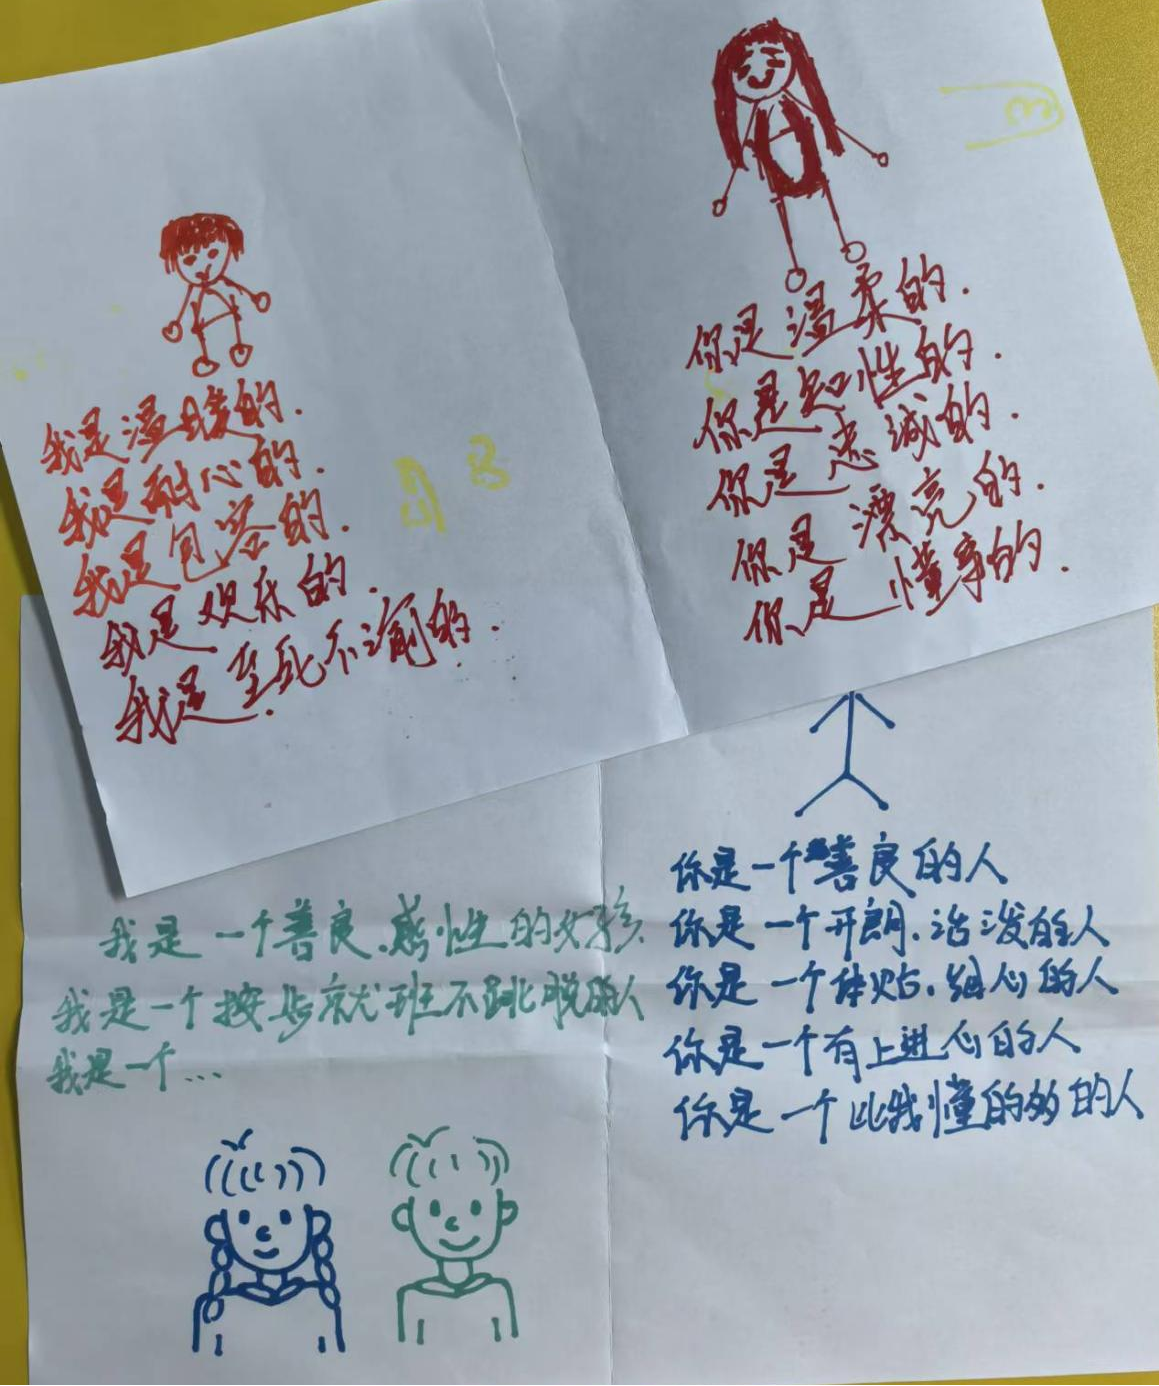 我是温暖的.
我是耐心的.
我是包容的.
我是欢乐的.
我是至死不渝的.
你是温柔的.
你是知性的.
你是忠诚的.
你是漂亮的.
你是懂事的.
我是一个善良.感性的女孩
我是一个按步就班不跳脱的人
我是一个...
你是一个善良的人
你是一个开朗.活泼的人
你是一个体贴.细心的人
你是一个有上进心的人
你是一个比我懂的多的人